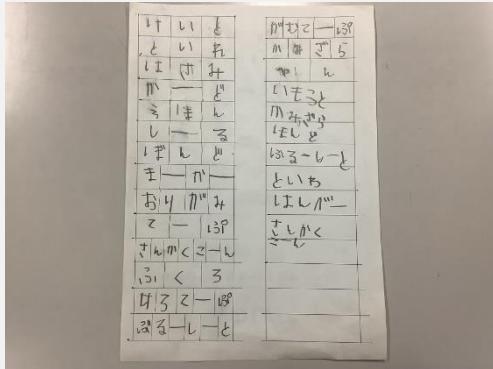 けいと
といれ
はさみ
かーど
えほん
しーる
ばんど
まーかー
おりがみ
てーぷ
さんかくこーん
ふくろ
けろてーぷ
ぶるーしーと
がむてーぷ
かみざら
いもうと
かみざら
ばんど
ぶるーしーと
といれ
はんがー
さんかく
こーん